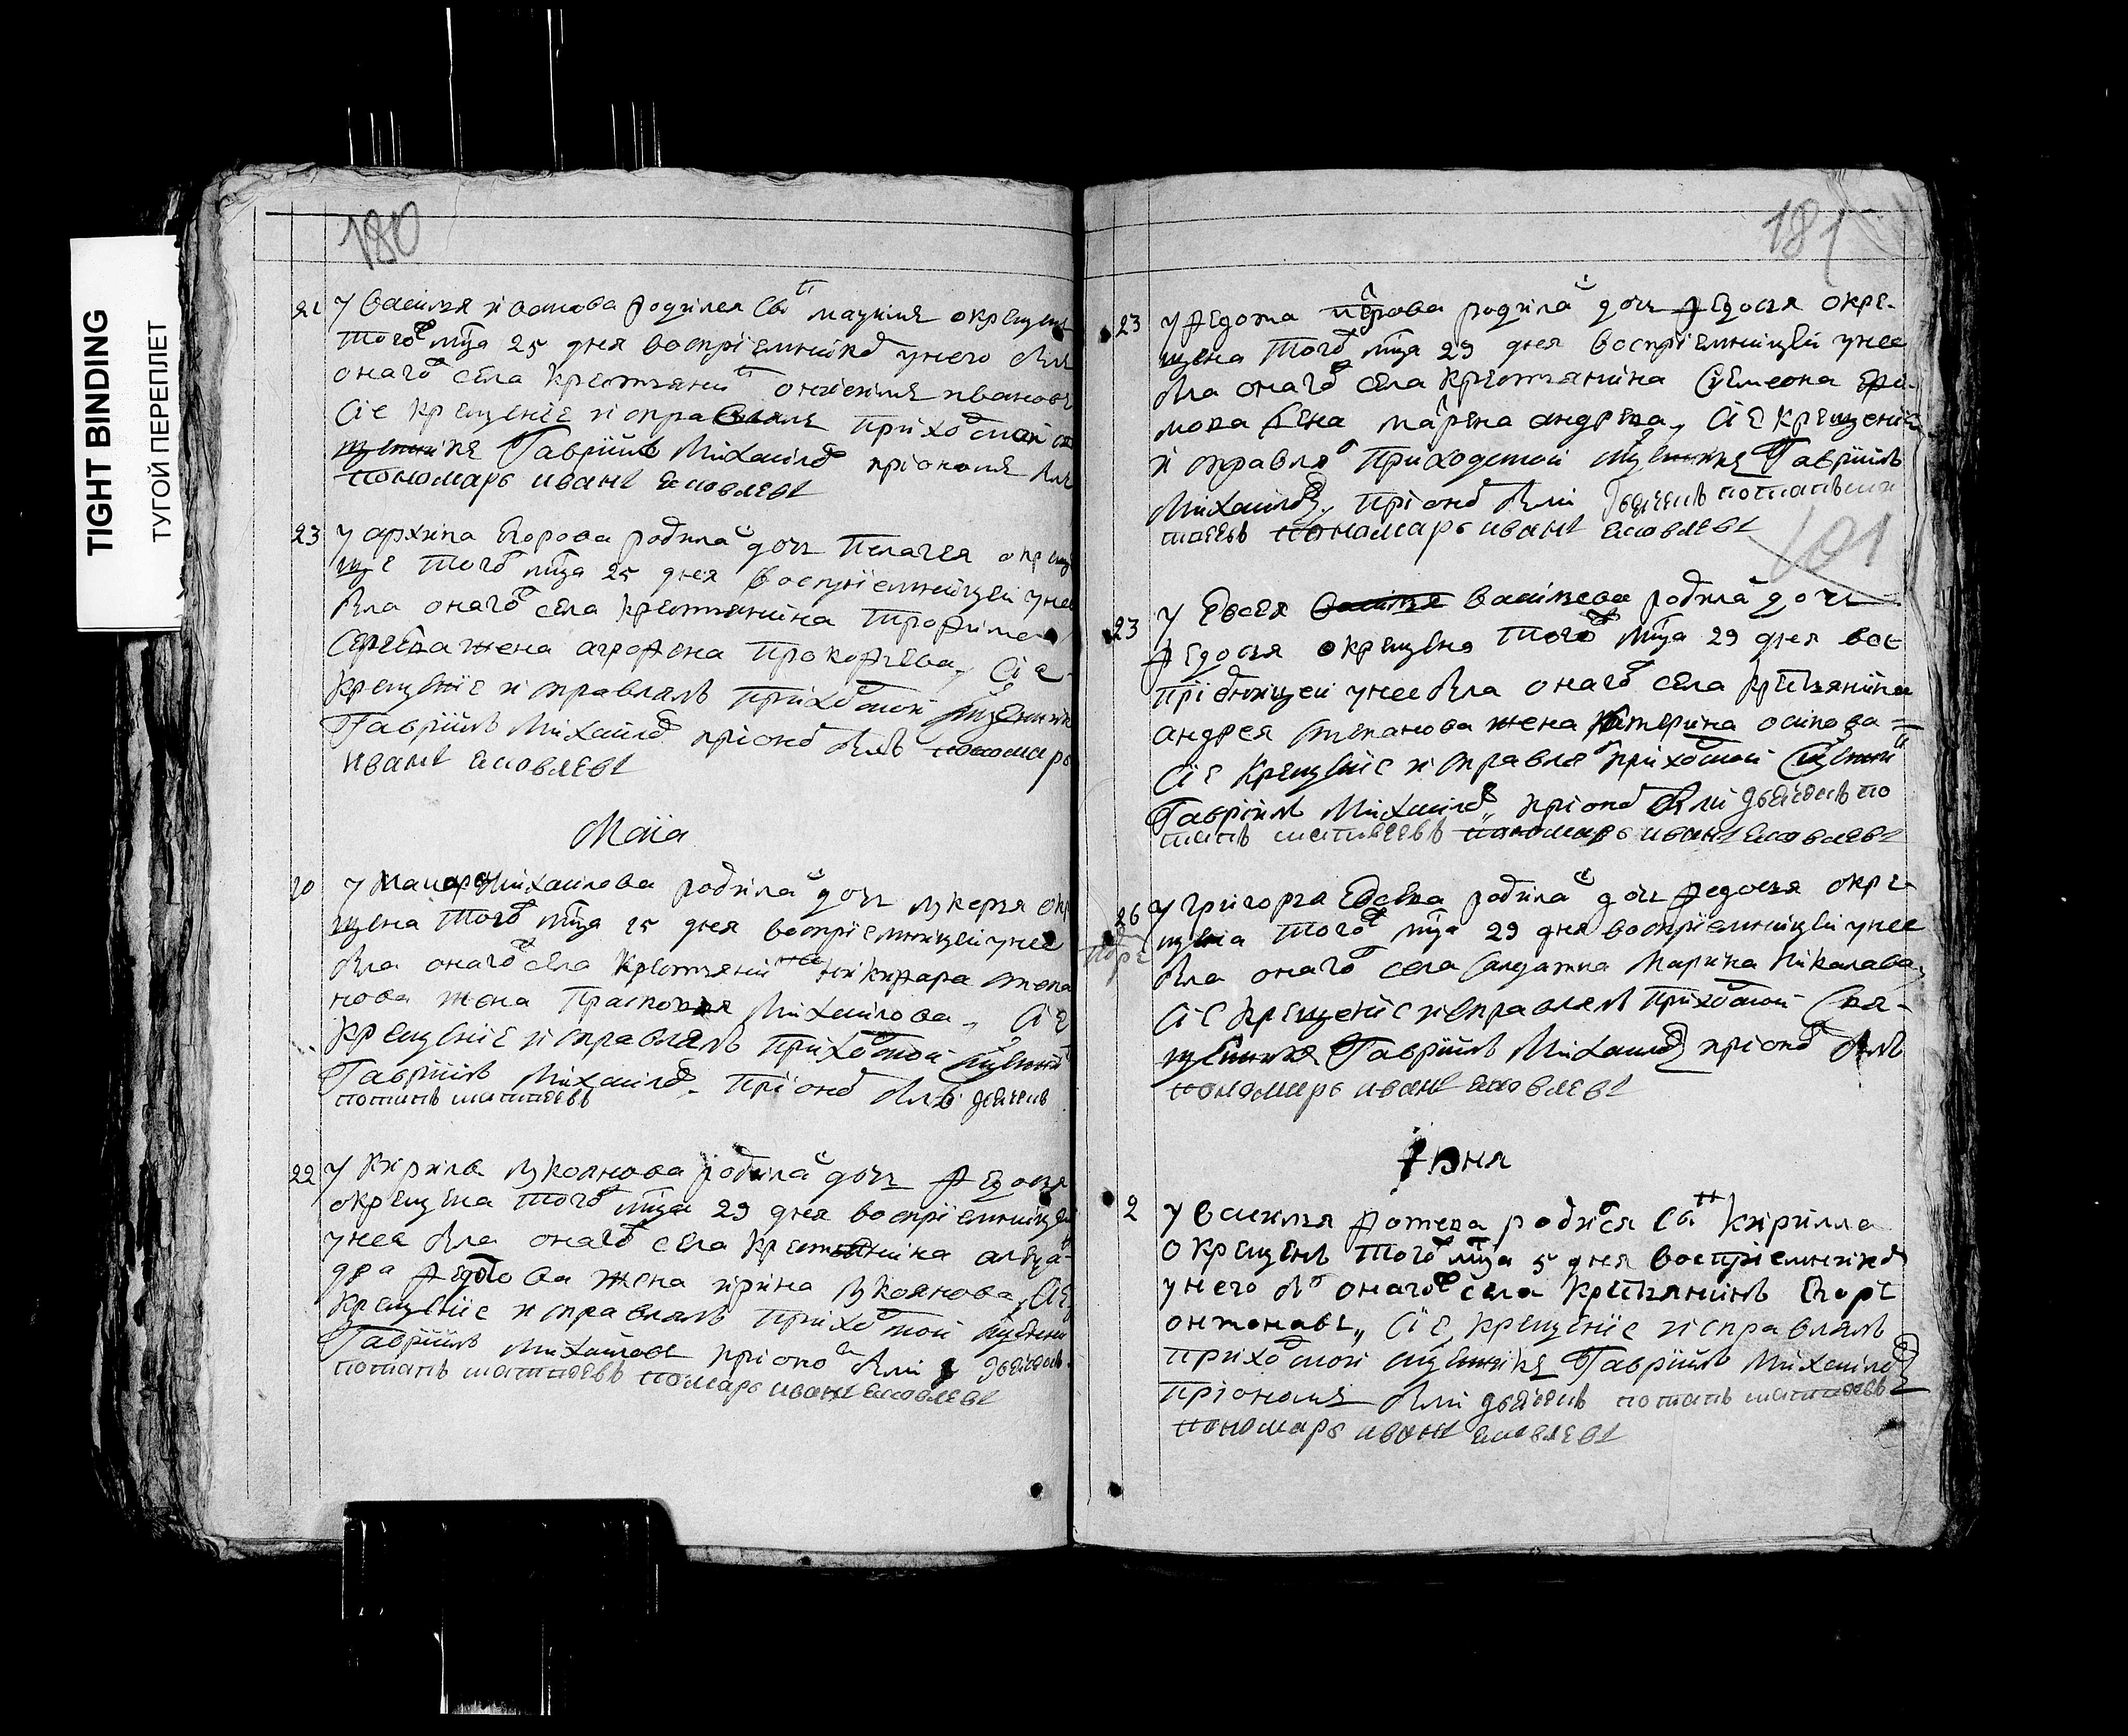 TIGHT BINDING
ТУГОЙ ПЕРЕПЛЕТ
180
21 У василя родился сн окрещен
того мца 25 дня восприемником у него был
онаго села крестьянин иванов
Сие крещение исправлял приходской
Гавриил Михайлов при оном был
пономарь иванъ яковлевъ
23 У архипа Егорова родилас дочь Пелагея окре
ще того мца 25 дня восприемницей у нее
была онаго села крестьянина Трофима
жена аграфена Прокофьева, Сие
крещение исправлялъ приходской священник
Гавриилъ Михайлов при оном былъ пономарь
иванъ яковлевъ
Маїа
20 У Михаилова родилас дочь лукерья окре
щена того мца 25 дня восприемницей у нее
была онаго села крестьянина никифара степа
нова жена Прасковья Михаилова, Сие
крещение исправлялъ приходской священник
Гавриилъ Михаилов. При оном былъ дьячекъ
потапъ матвеевъ
22 У Кирила лукоянова родилас дочь Федосья
окрещена того мца 29 дня восприемницей
у нее была онаго села крестьянина
Федотова жена ирина лукоянова, Сие
крещение исправлялъ приходской священник
Гавриилъ Михайловъ при оном были дьячокъ
потапъ матвеевъ помарь иванъ яковлевъ
181
23 У Федота родилас дочь Федосья окре-
щена того мца 29 дня восприемницей у нее
была онаго села крестьянина Симеона
жена марена андреева, Сие крещение
исправлял приходской священник Гавриилъ
Михаилов, при оном были дьячекъ потапъ ма
твеевъ пономарь иванъ яковлевъ
101
23 У Евсея василева родилас дочь
Федосья окрещена того мца 29 дня вос
приемницей у нее была онаго села крестьянина
андрея степанова жена катерина осипова
Сие крещение исправлял приходской священник
Гавриилъ Михаилов, при оном были дьячокъ по
тапъ матвеевъ пономарь иванъ яковлевъ
26 У григорья Евсева родилас дочь Федосья окре-
щена того мца 29 дня восприемницей у нее
была онаго села салдатка Марина Никалаева,
Сие крещение исправлялъ приходской свя-
щенник Гавриилъ Михаилов при оном былъ
пономарь иванъ яковлевъ
Іюня
2 У василья Фотева родился снъ Кирилла
окрещенъ того мца 5 дня восприемником
у него был онаго села крестьянинъ Егоръ
онтоновъ, Сие крещение исправлялъ
приходской священник Гавриилъ Михаилов
при оном были дьячекъ потапъ матвеевъ
пономарь иванъ яковлевъ